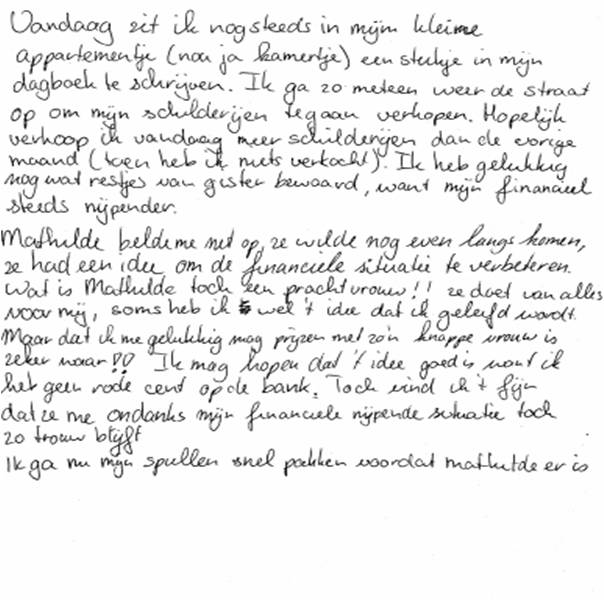 Vandaag zit ik nog steeds in mijn kleine
appartementje (nou ja kamertje) een stukje in mijn
dagboek te schrijven. Ik ga zo meteen weer de straat
op om mijn schilderijen te gaan verkopen. Hopelijk
verkoop ik vandaag meer schilderijen dan de vorige
maand (toen heb ik niets verkocht). Ik heb gelukkig
nog wat restjes van gister bewaard, want mijn financieel
steeds nijpender.
Mathilde belde me net op, ze wilde nog even langs komen,
ze had een idee om de financiele situatie te verbeteren.
Wat is Mathilde toch een prachtvrouw!! ze doet van alles
voor mij, soms heb ik wel 't idee dat ik geleefd wordt.
Maar dat ik me gelukkig mag prijzen met zo'n knappe vrouw is
zeker waar!! Ik mag hopen dat 't idee goed is want ik
heb geen rode cent op de bank. Toch vind ik 't fijn
dat ze me ondanks mijn financiele nijpende situatie toch
zo trouw blijft
Ik ga nu mijn spullen snel pakken voordat mathilde er is